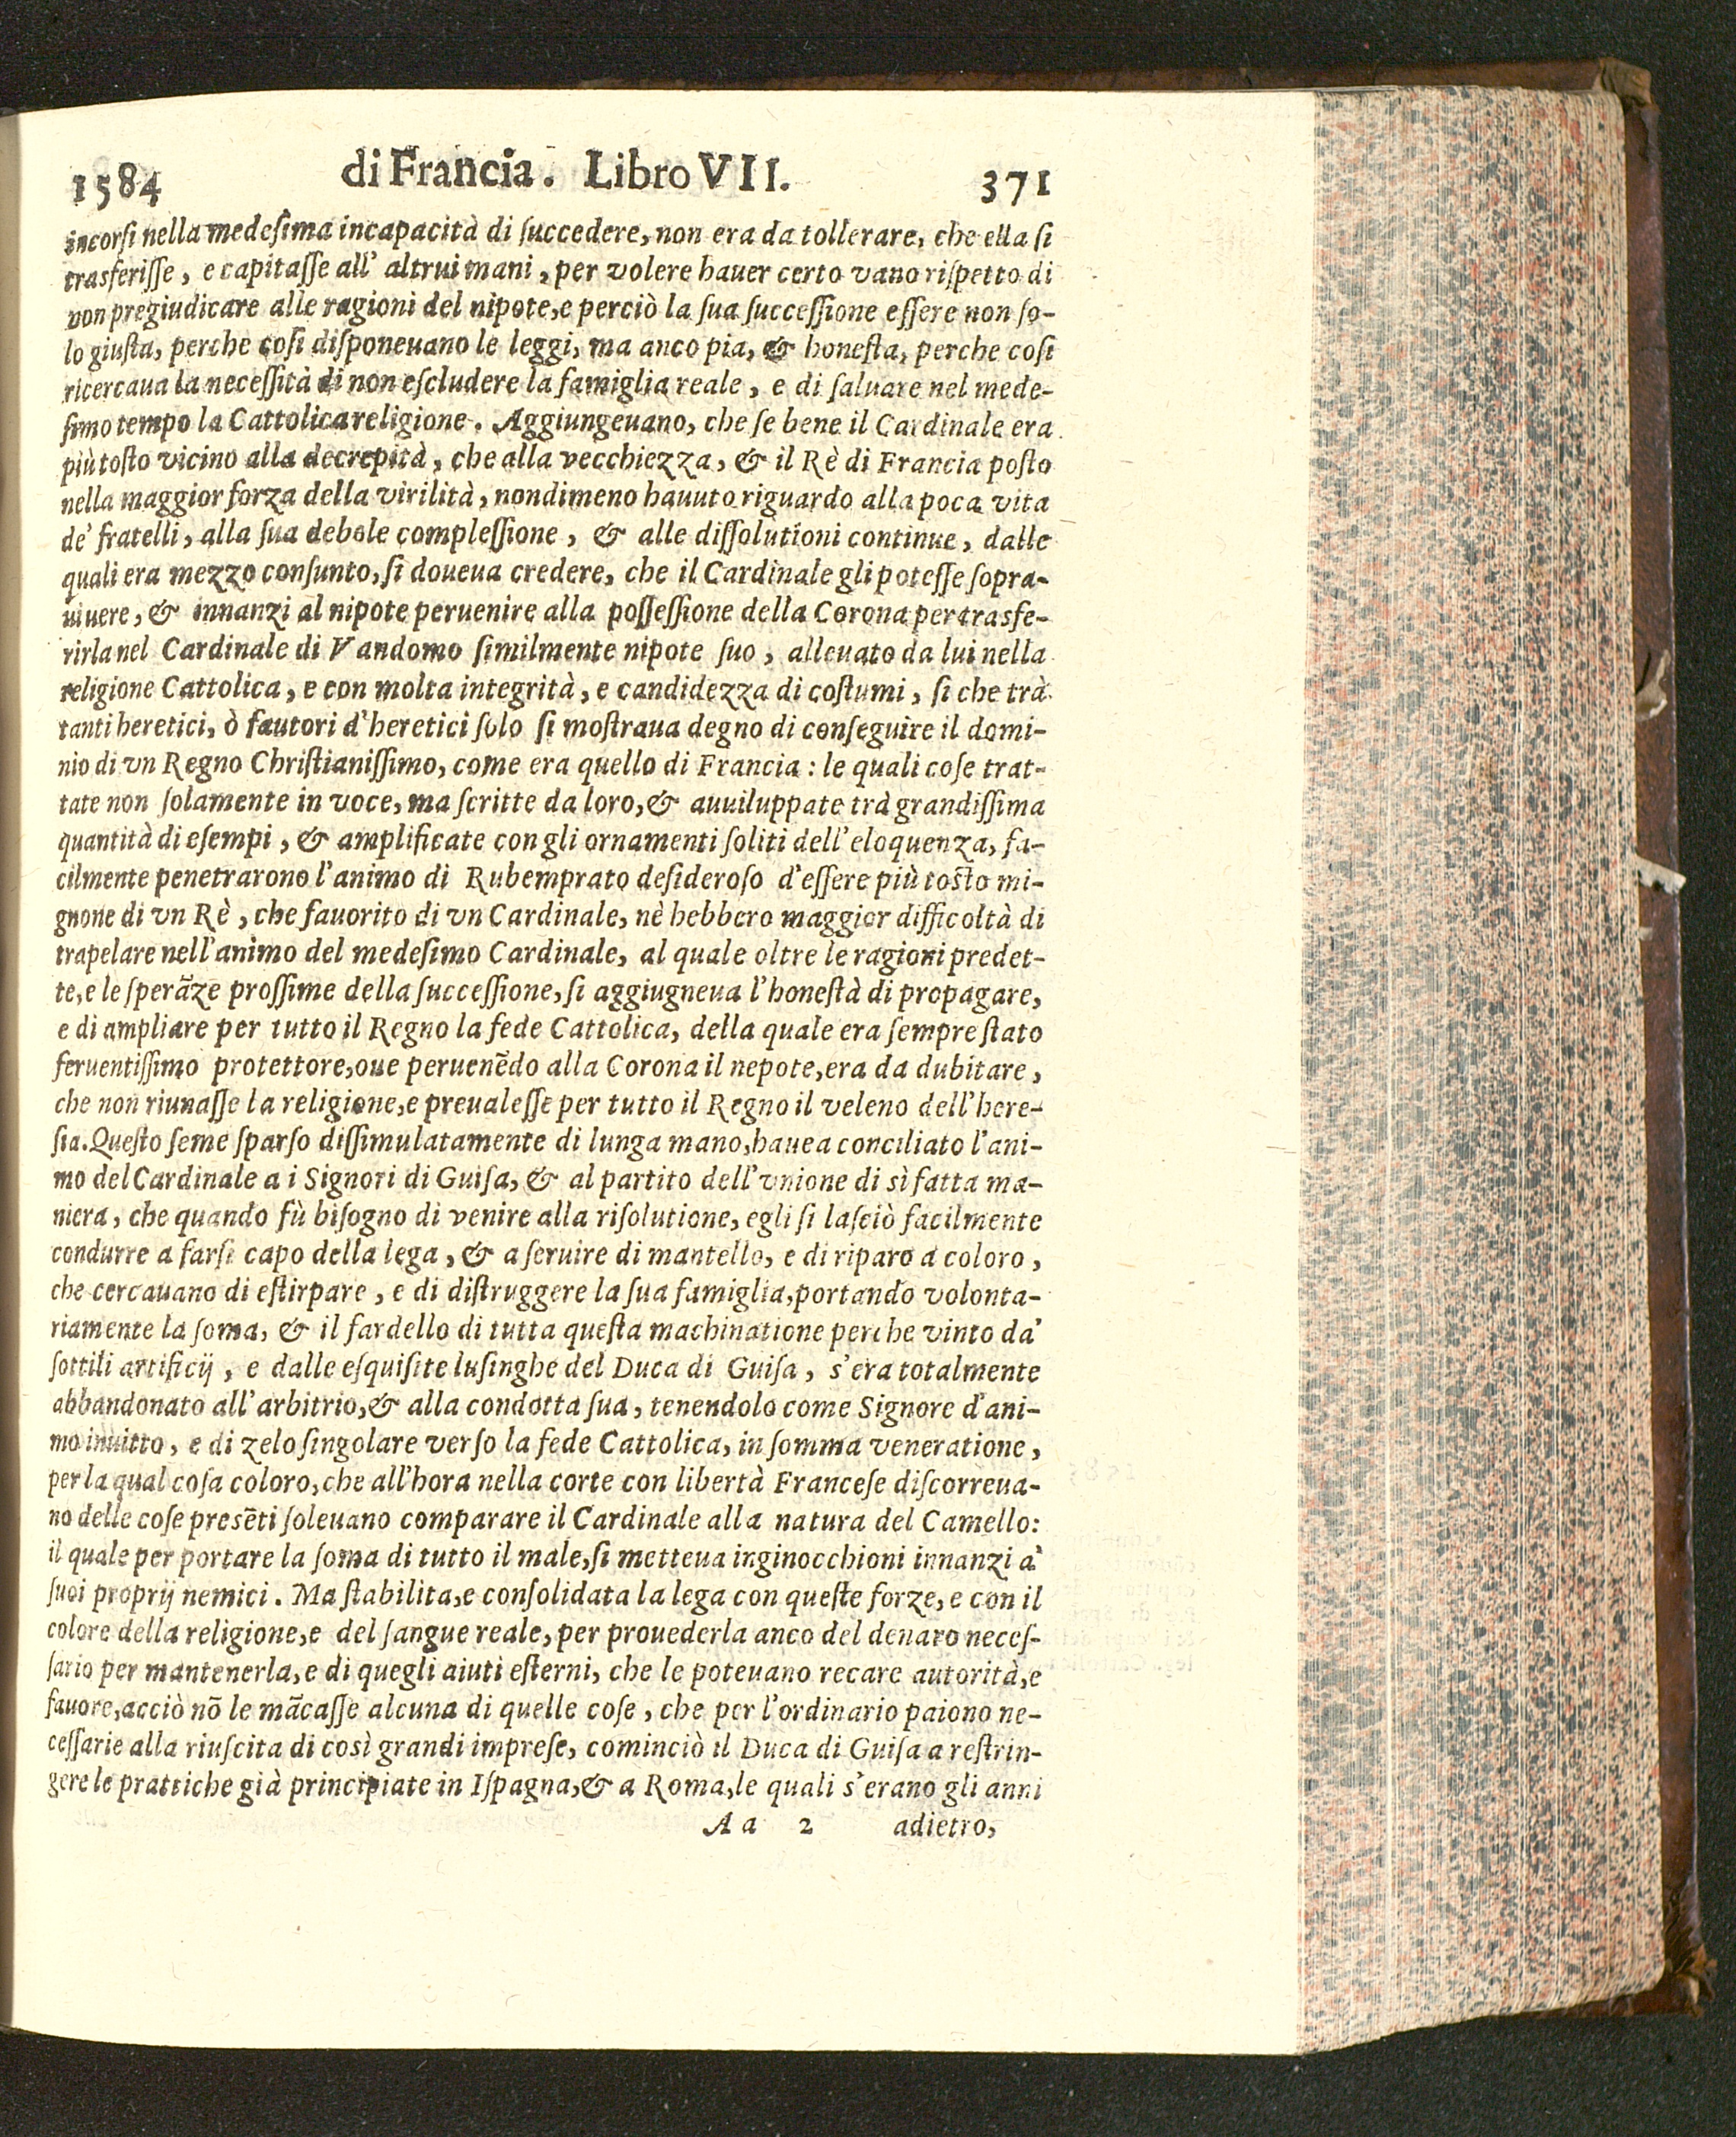 1584 di Francia. Libro VII. 371
incorſi nella medeſima incapacità di ſuccedere, non era da tollerare, che ella ſi
trasferiſſe, e capitaſſe all' altrui mani, per volere hauer certo vano riſpetto di
non pregiudicare alle ragioni del nipote, e perciò la ſua ſucceſſione eſſere non ſo-
lo giuſta, perche coſi diſponeuano le leggi, ma anco pia, & honeſta, perche coſi
ricercaua la neceſſità di non eſcludere la famiglia reale, e di ſaluare nel mede-
ſimo tempo la Cattolica religione. Aggiungeuano, che ſe bene il Cardinale era
più toſto vicino alla decrepità, che alla vecchiezza, & il Rè di Francia poſto
nella maggior forza della virilità, nondimeno hauuto riguardo alla poca vita
de' fratelli, alla ſua debole compleſſione, & alle diſſolutioni continue, dalle
quali era mezzo conſunto, ſi doueua credere, che il Cardinale gli poteſſe ſopra-
uiuere, & innanzi al nipote peruenire alla poſſeſſione della Corona per trasfe-
rirla nel Cardinale di Vandomo ſimilmente nipote ſuo, alleuato da lui nella
religione Cattolica, e con molta integrità, e candidezza di coſtumi, ſi che trà
tanti heretici, ò fautori d'heretici ſolo ſi moſtraua degno di conſeguire il domi-
nio di vn Regno Chriſtianiſſimo, come era quello di Francia: le quali coſe trat-
tate non ſolamente in voce, ma ſcritte da loro, & auuiluppate trà grandiſſima
quantità di eſempi, & amplificate con gli ornamenti ſoliti dell'eloquenza, fa-
cilmente penetrarono l'animo di Rubemprato deſideroſo d'eſſere più toſto mi-
gnone di vn Rè, che fauorito di vn Cardinale, nè hebbero maggior difficoltà di
trapelare nell'animo del medeſimo Cardinale, al quale oltre le ragioni predet-
te, e le ſperãze proſſime della ſucceſſione, ſi aggiugneua l'honeſtà di propagare,
e di ampliare per tutto il Regno la fede Cattolica, della quale era ſempre ſtato
feruentiſſimo protettore, oue peruenẽdo alla Corona il nepote, era da dubitare,
che non riunaſſe la religione, e preualeſſe per tutto il Regno il veleno dell'here-
ſia. Queſto ſeme ſparſo diſſimulatamente di lunga mano, hauea conciliato l'ani-
mo del Cardinale a i Signori di Guiſa, & al partito dell'vnione di sì fatta ma-
niera, che quando fù biſogno di venire alla riſolutione, egli ſi laſciò facilmente
condurre a farſi capo della lega, & a ſeruire di mantello, e di riparo a coloro,
che cercauano di eſtirpare, e di diſtruggere la ſua famiglia, portando volonta-
riamente la ſoma, & il fardello di tutta queſta machinatione perche vinto da'
ſottili artificij, e dalle eſquiſite luſinghe del Duca di Guiſa, s'era totalmente
abbandonato all'arbitrio, & alla condotta ſua, tenendolo come Signore d'ani-
mo inuitto, e di zelo ſingolare verſo la fede Cattolica, in ſomma veneratione,
per la qual coſa coloro, che all'hora nella corte con libertà Franceſe diſcorreua-
no delle coſe presẽti ſoleuano comparare il Cardinale alla natura del Camello:
il quale per portare la ſoma di tutto il male, ſi metteua inginocchioni innanzi a'
ſuoi proprij nemici. Ma ſtabilita, e conſolidata la lega con queſte forze, e con il
colore della religione, e del ſangue reale, per prouederla anco del denaro neceſ-
ſario per mantenerla, e di quegli aiuti eſterni, che le poteuano recare autorità, e
fauore, acciò nõ le mãcaſſe alcuna di quelle coſe, che per l'ordinario paiono ne-
ceſſarie alla riuſcita di così grandi impreſe, cominciò il Duca di Guiſa a reſtrin-
gere le prattiche già principiate in Iſpagna, & a Roma, le quali s'erano gli anni
Aa 2 adietro,